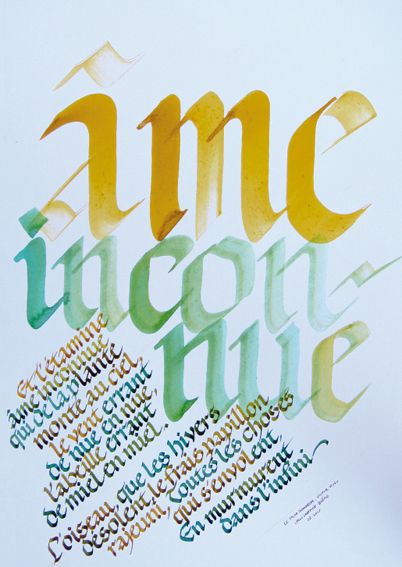 âme
incon-
nue
Et l'étamine
âme inconnue
qui de la plante
monte au ciel
le vent errant
de nue en nue,
l'abeille errant
de miel en miel.
L'oiseau que les hivers
désolent, le frais papillon
rajeuni, toutes les choses
qui s'envolent,
En murmurent
dans l'infini